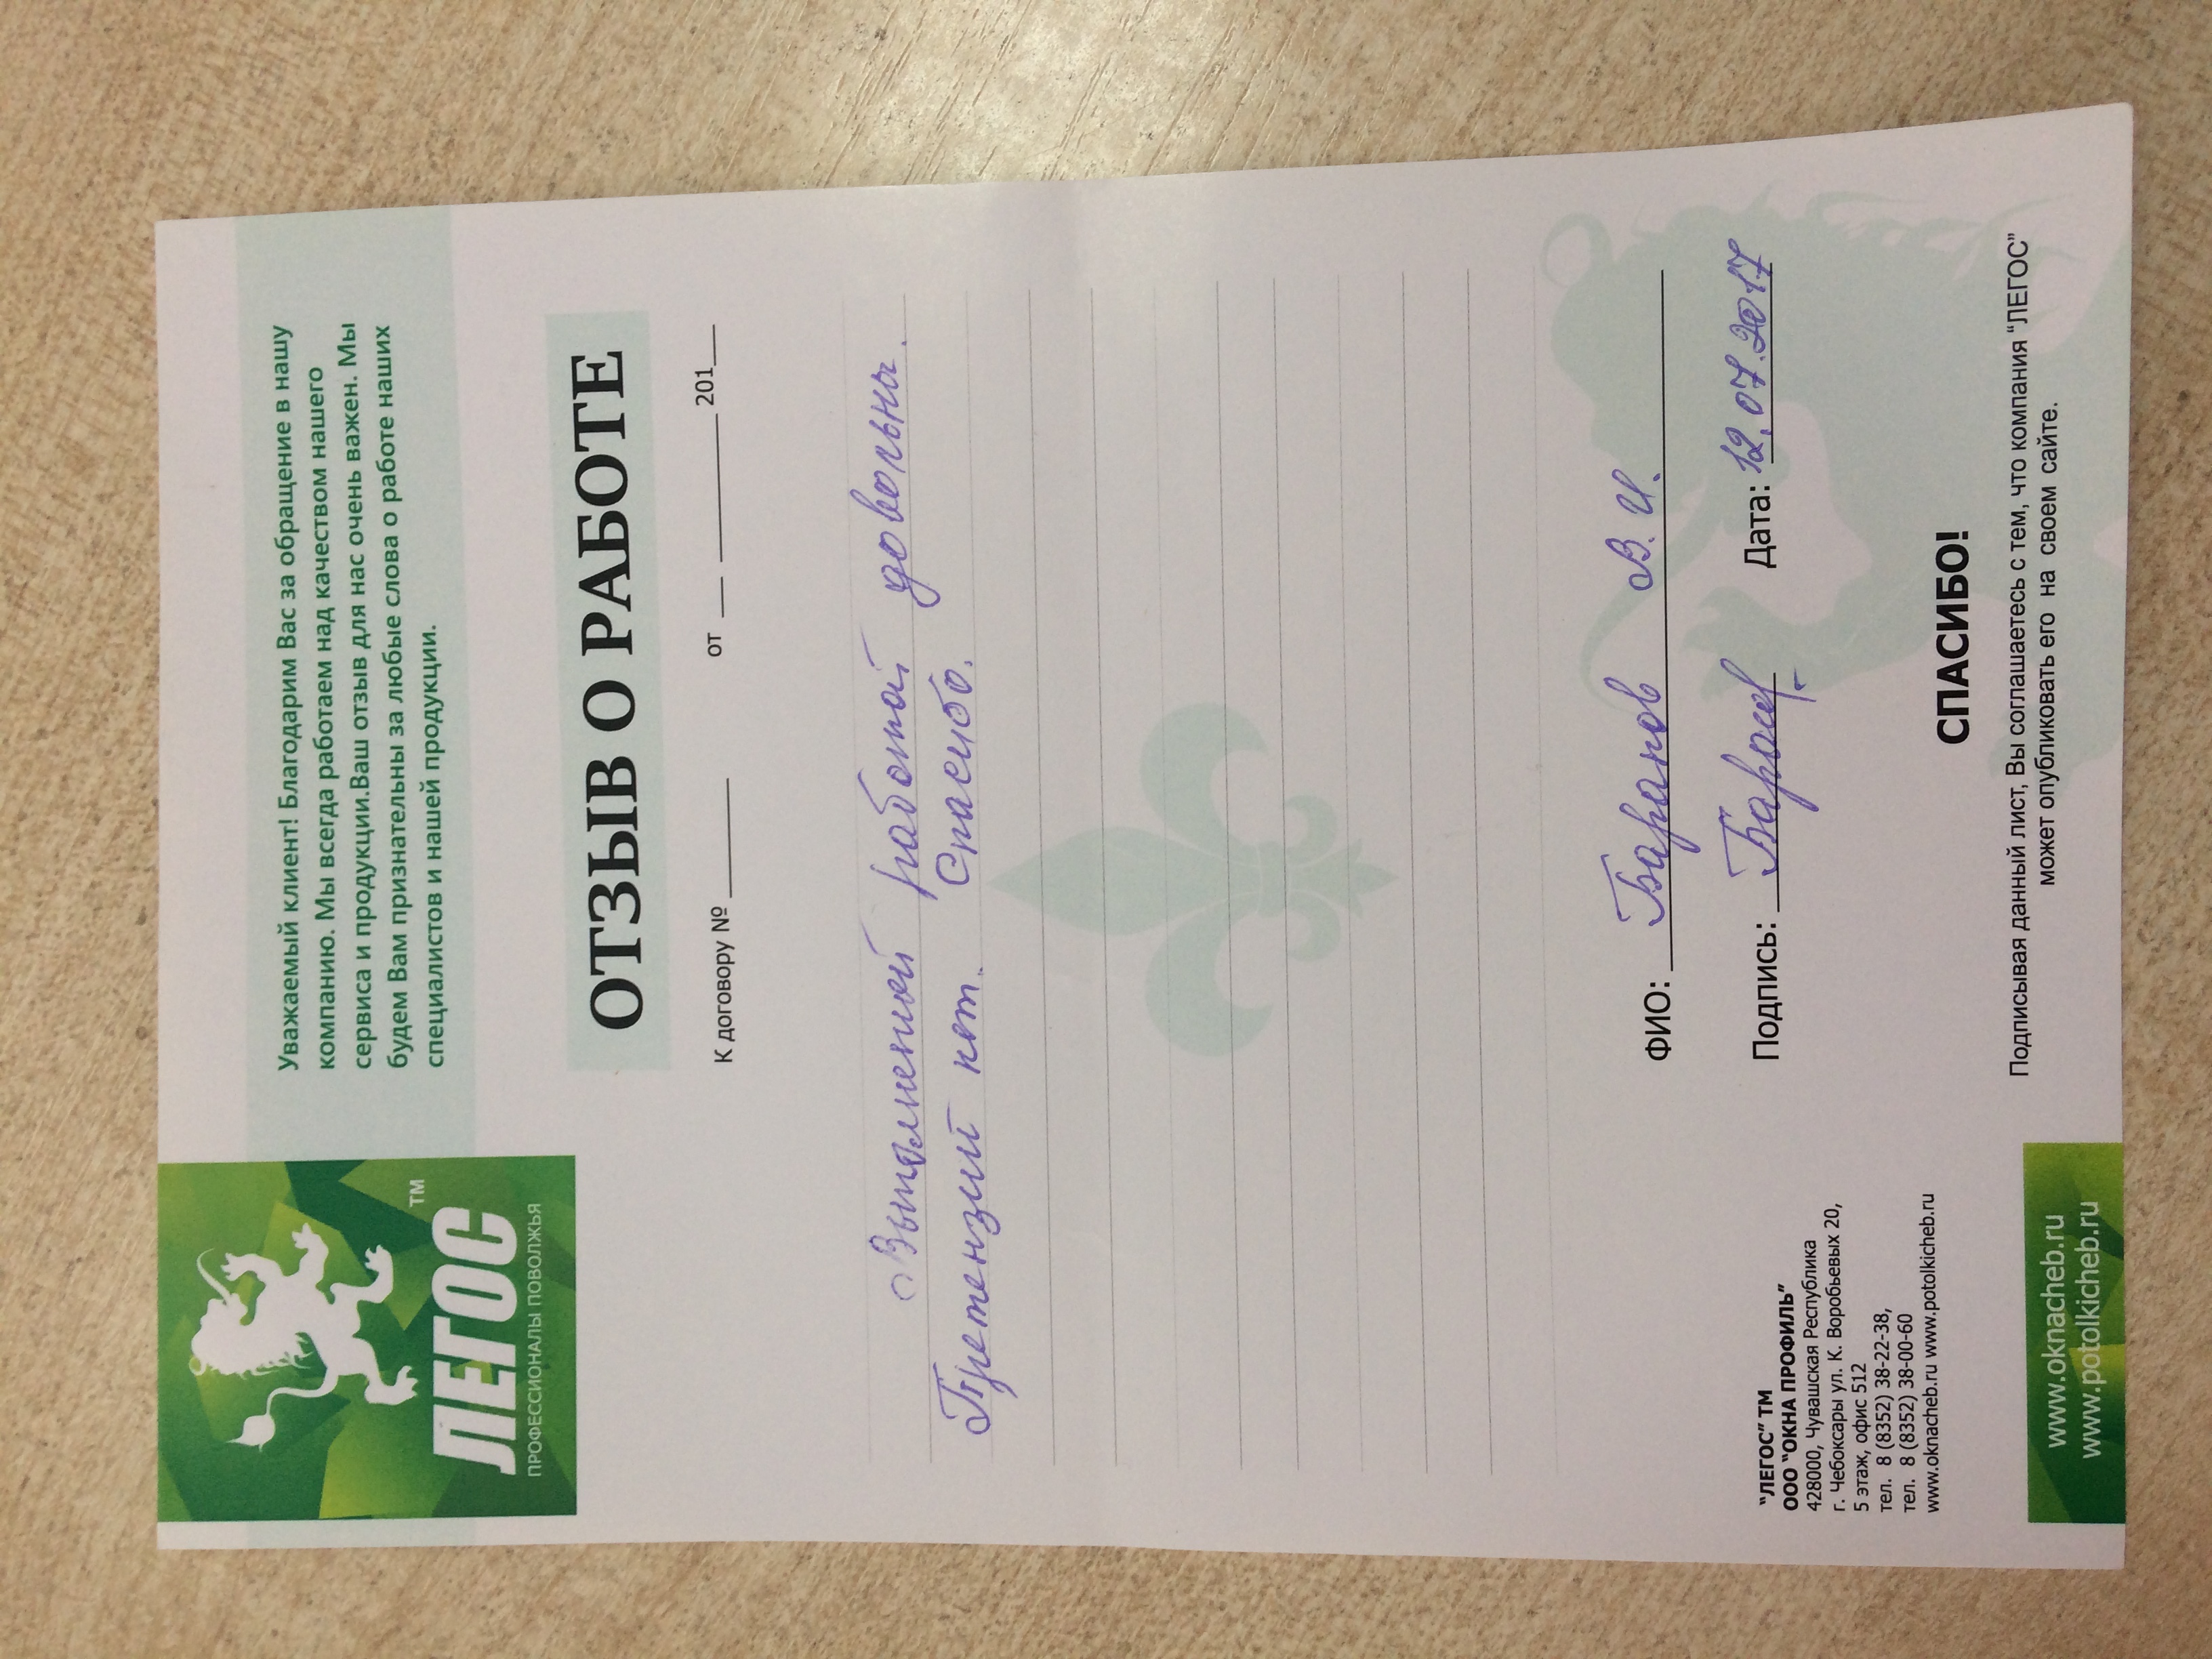 ТМ
ЛЕГОС
ПРОФЕССИОНАЛЫ ПОВОЛЖЬЯ
Уважаемый клиент! Благодарим Вас за обращение в нашу
компанию. Мы всегда работаем над качеством нашего
сервиса и продукции.Ваш отзыв для нас очень важен. Мы
будем Вам признательны за любые слова о работе наших
специалистов и нашей продукции.
ОТЗЫВ О РАБОТЕ
К договору № ________ от ___ __________ 201___
Выполненной работой довольны.
Претензий нет. Спасибо.
ФИО: Баранов В. И.
Подпись: Баранов Дата: 12.07.2017
"ЛЕГОС" ТМ
ООО "ОКНА ПРОФИЛЬ"
428000, Чувашская Республика
г. Чебоксары ул. К. Воробьевых 20,
5 этаж, офис 512
тел. 8 (8352) 38-22-38,
тел. 8 (8352) 38-00-60
www.oknacheb.ru www.potolkicheb.ru
СПАСИБО!
Подписывая данный лист, Вы соглашаетесь с тем, что компания "ЛЕГОС"
может опубликовать его на своем сайте.
www.oknacheb.ru
www.potolkicheb.ru